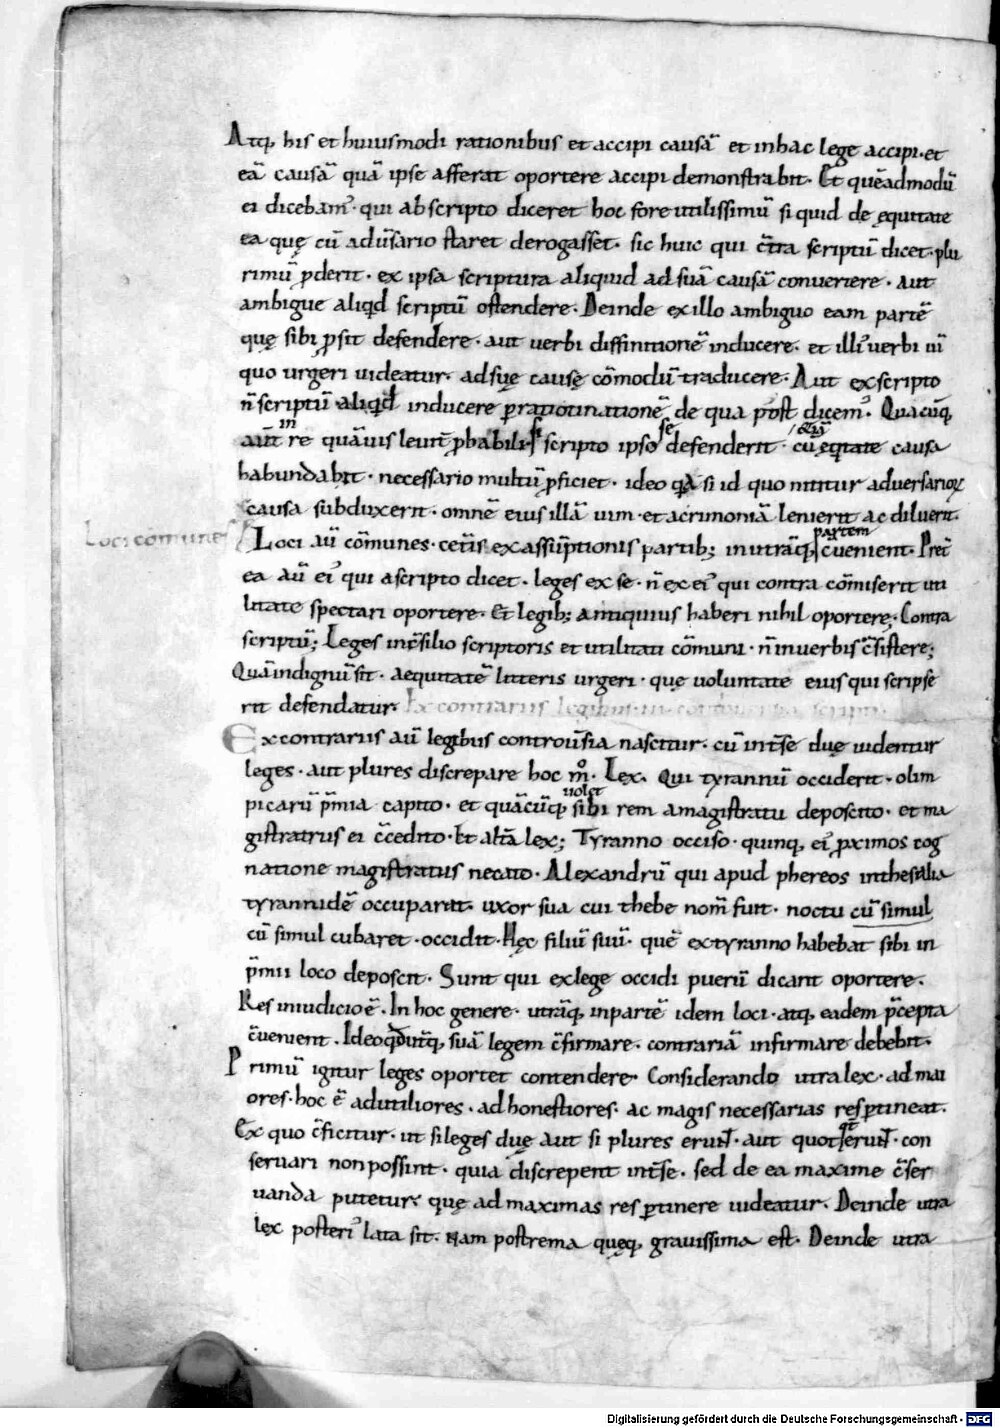 Atq; his et huiusmodi rationibus et accipi causā et in hac lege accipi· et
eā causā quā ipse afferat oportere accipi demonstrabit· Et quēadmodū
ei dicebam᾽ qui ab scripto diceret hoc fore utilissimū si quid de ęquitate
ea quę cū adūsario staret derogasset· sic huic qui c̄tra scriptū dicet· plu
rimū ꝓderit· ex ipsa scriptura aliquid ad suā causā conuertere· aut
ambigue aliqd scriptū ostendere· Deinde ex illo ambiguo eam partē
quę sibi ꝓsit defendere· aut uerbi diffinitionē inducere· et illi᾽ uerbi uī
quo urgeri uideatur· ad suę causę cōmodū traducere· Aut ex scripto
n̄ scriptū aliqd inducere ꝑ ratiotinationē de qua post dicem᾽· Quacūq;
aūt in re quāuis leuit̄ ꝓbabili· scripto ipso se defenderit· cū ęqtate causa
habundabit· necessario multū ꝓficiet· ideo qa si id quo nititur aduersarioꝝ
causa subduxerit· omnē eius illā uim· et acrimoniā lenierit ac diluerit·
Loci comunes
Loci aū cōmunes· cet̄is ex assūptionis partib; in utrāq; partem c̄uenient· Pret̄
ea aū ei᾽ qui a scripto dicet· leges ex se· n̄ ex ei᾽ qui contra cōmiserit uti
litate spectari oportere· Et legib; antiquius haberi nihil oportere; Contra
scriptū; Leges in c̄silio scriptoris et utilitati cōmuni· n̄ in uerbis c̄sistere;
Quā indignū sit· aequitatē litteris urgeri· quę uoluntate eius qui scripse
rit defendatur· Ex contrariis legibus
Ex contrariis aū legibus controūsia nascitur· cū int̄ se duę uidentur
leges· aut plures discrepare hoc mº· Lex· Qui tyrannū occiderit· olim
picarū p̄mia capito· et quācūq; uolet sibi rem a magistratu deposcito· et ma
gistratrus ei c̄cedito· Et altā lex; Tyranno occiso· quinq; ei᾽ ꝓximos cog
natione magistratus necato· Alexandrū qui apud phereos in thesalia
tyrannidē occuparat· uxor sua cui thebe nom̄ fuit· noctu cū simul
cū simul cubaret· occidit· Hęc filiū suū· quē ex tyranno habebat sibi in
p̄mii loco deposcit· Sunt qui ex lege occidi puerū dicant oportere·
Res in iudicio ē· In hoc genere· utrāq; in partē idem loci· atq; eadem p̄cepta
c̄uenient· Ideo qd utq; suā legem c̄firmare· contrariā infirmare debebit·
Primū igitur leges oportet contendere· Considerando utra lex· ad mai
ores· hoc ē ad utiliores· ad honestiores· ac magis necessarias res ꝑtineat·
Ex quo c̄ficitur· ut si leges duę aut si plures erunt· aut quotquot erunt· con
seruari non possint· quia discrepent int̄ se· sed de ea maxime c̄ser
uanda putetur· quę ad maximas res ꝑtinere uideatur· Deinde utra
lex posteri᾽ lata sit· Nam postrema quęq; grauissima est· Deinde utra
Digitalisierung gefördert durch die Deutsche Forschungsgemeinschaft - DFG